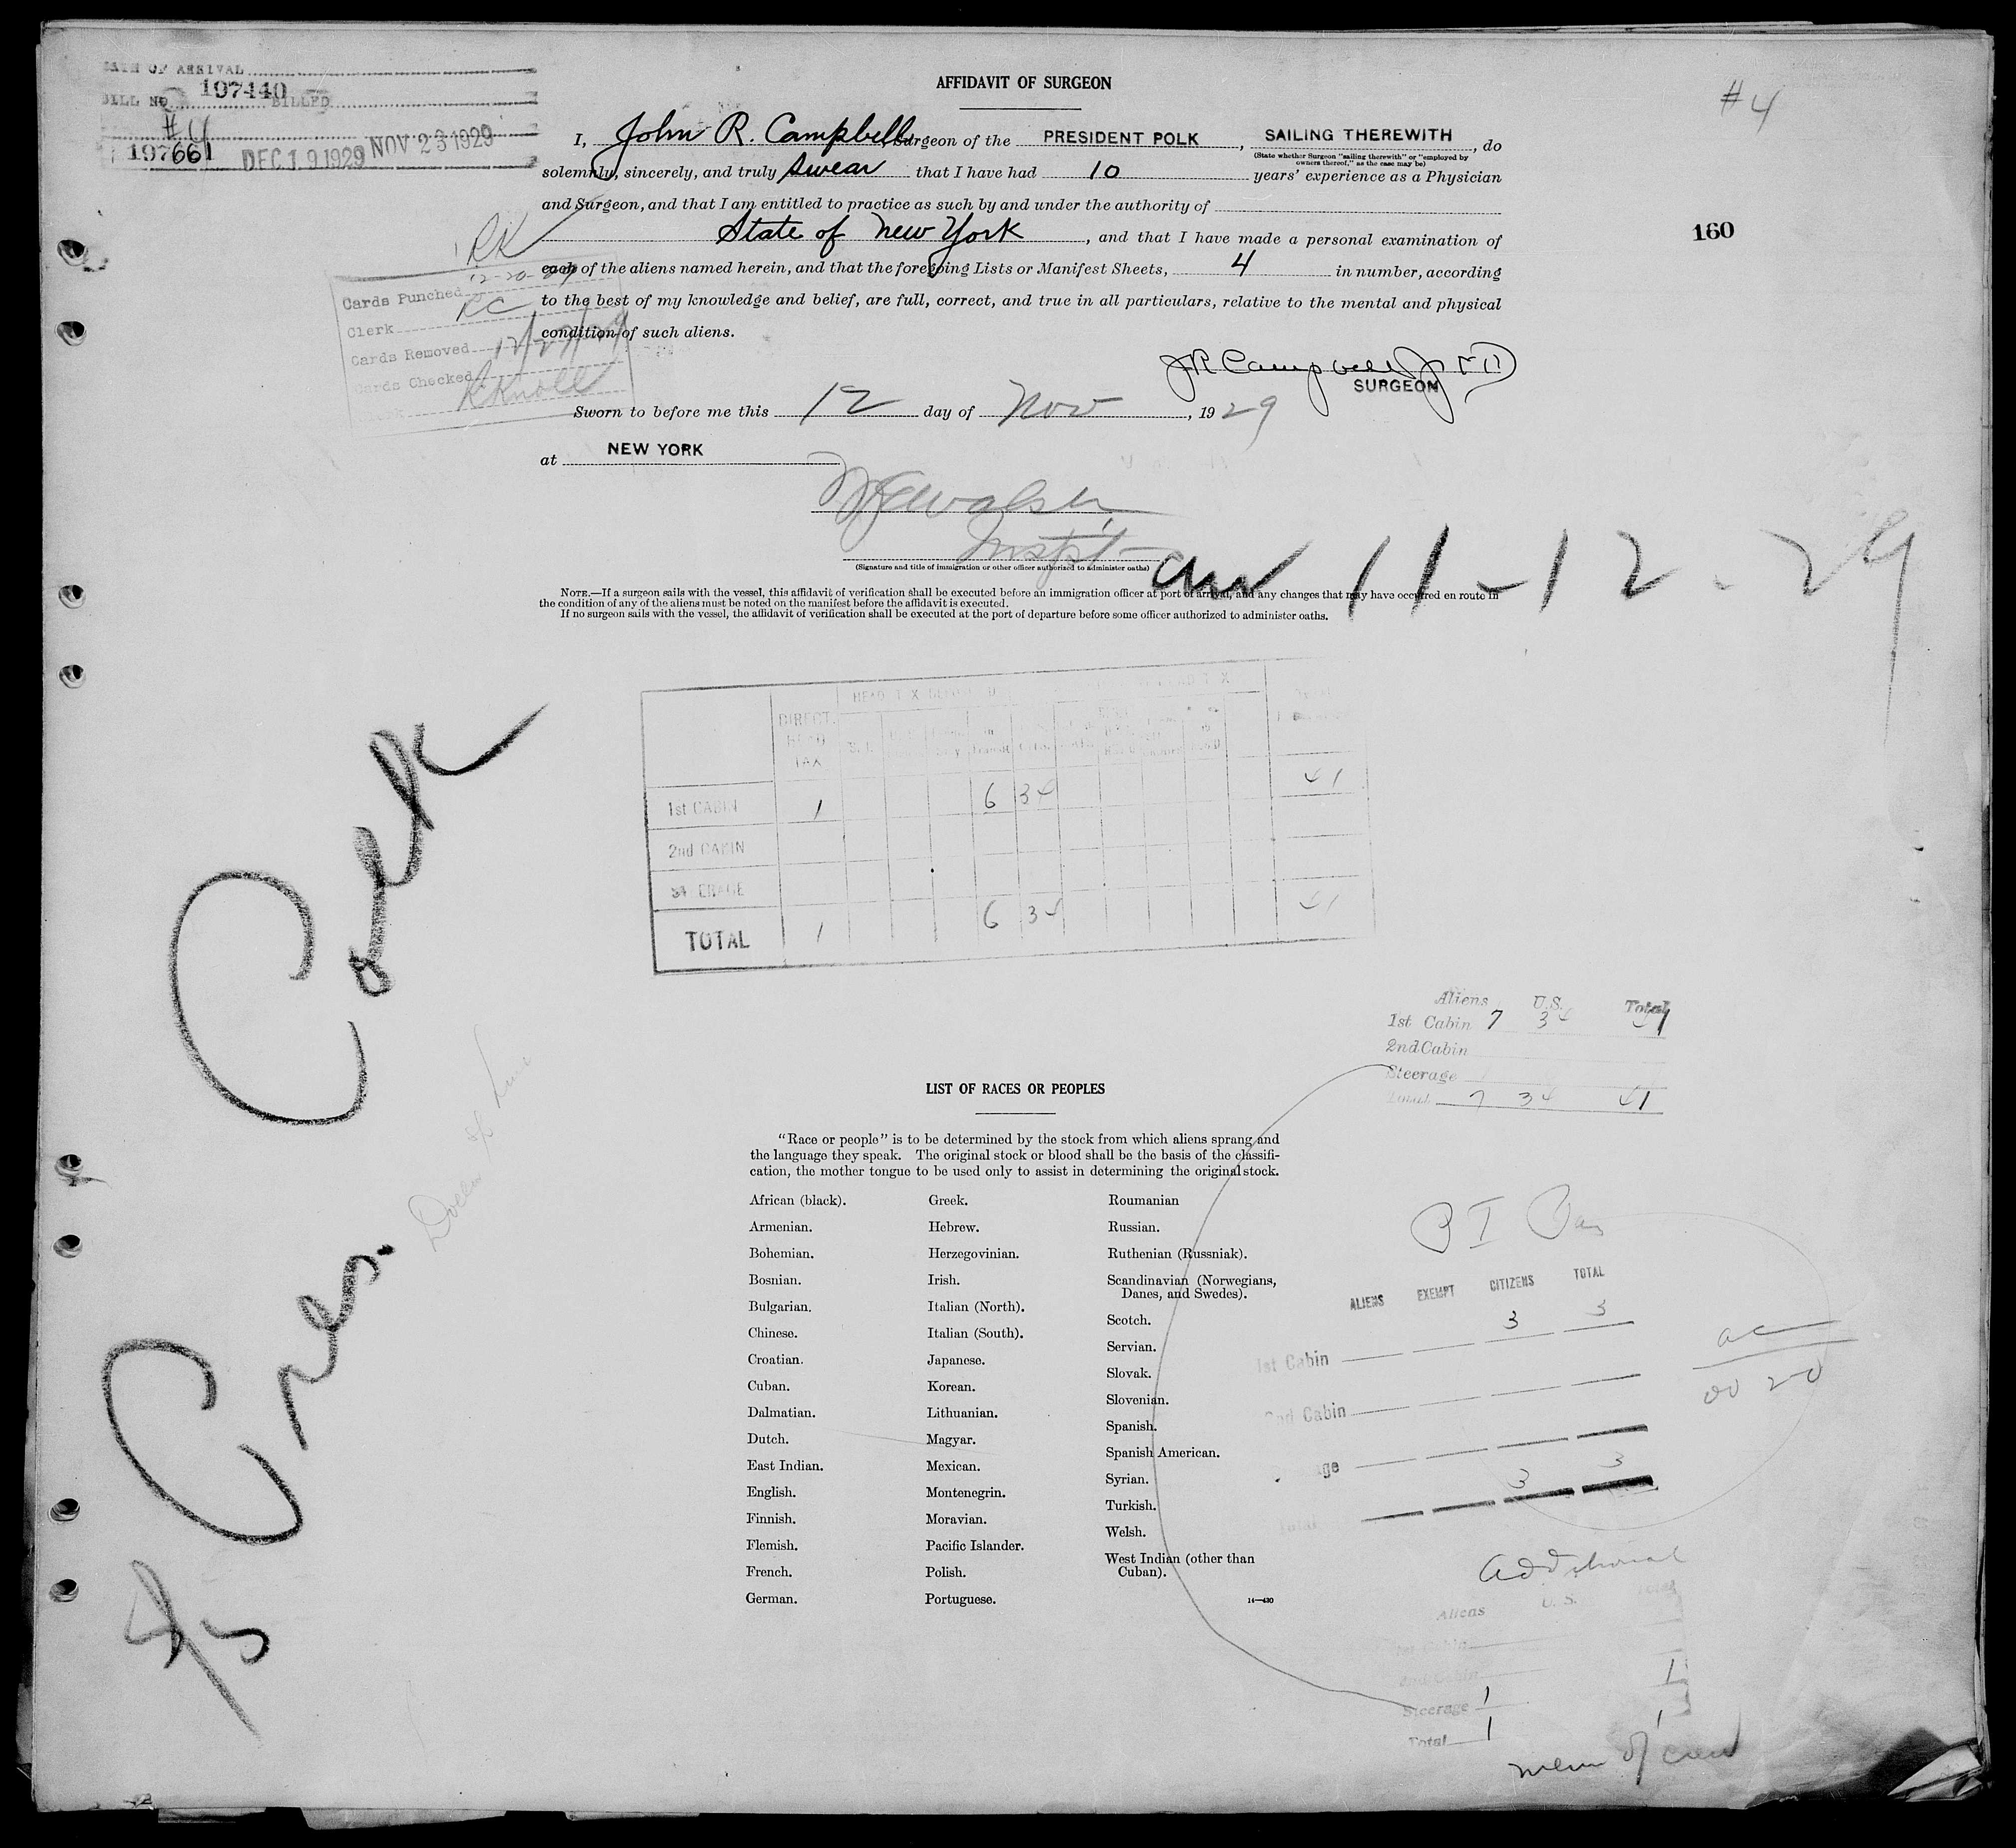 DATE OF ARRIVAL
BILL NO. 107440 BILLED
#4
107661 DEC 19 1929 NOV 23 1929
#4
160
AFFIDAVIT OF SURGEON
I, John R. Campbell, Surgeon of the PRESIDENT POLK, SAILING THEREWITH, do
(State whether Surgeon "sailing therewith" or "employed by
owners thereof," as the case may be)
solemnly, sincerely, and truly swear that I have had 10 years' experience as a Physician
and Surgeon, and that I am entitled to practice as such by and under the authority of
State of New York, and that I have made a personal examination of
each of the aliens named herein, and that the foregoing Lists or Manifest Sheets, 4 in number, according
to the best of my knowledge and belief, are full, correct, and true in all particulars, relative to the mental and physical
condition of such aliens.
RK
12-20-29
Cards Punched
Clerk KC
Cards Removed 12/27/29
Cards Checked
Clerk RKnoll
J R Campbell Jr MD
SURGEON
Sworn to before me this 12 day of Nov, 1929
at NEW YORK
Inspt
(Signature and title of immigration or other officer authorized to administer oaths)
11-12-29
NOTE.—If a surgeon sails with the vessel, this affidavit of verification shall be executed before an immigration officer at port of arrival, and any changes that may have occurred en route in
the condition of any of the aliens must be noted on the manifest before the affidavit is executed.
If no surgeon sails with the vessel, the affidavit of verification shall be executed at the port of departure before some officer authorized to administer oaths.
DIRECT HEAD TAX
1st CABIN 1 6 34 41
2nd CABIN
STEERAGE
TOTAL 1 6 34 41
Aliens U.S. Total
1st Cabin 7 34 41
2nd Cabin
Steerage
Total 7 34 41
S/S Pres. Polk
Dollar Line
LIST OF RACES OR PEOPLES
"Race or people" is to be determined by the stock from which aliens sprang and
the language they speak. The original stock or blood shall be the basis of the classifi-
cation, the mother tongue to be used only to assist in determining the original stock.
African (black). Greek. Roumanian
Armenian. Hebrew. Russian.
Bohemian. Herzegovinian. Ruthenian (Russniak).
Bosnian. Irish. Scandinavian (Norwegians,
Danes, and Swedes).
Bulgarian. Italian (North). Scotch.
Chinese. Italian (South). Servian.
Croatian. Japanese. Slovak.
Cuban. Korean. Slovenian.
Dalmatian. Lithuanian. Spanish.
Dutch. Magyar. Spanish American.
East Indian. Mexican. Syrian.
English. Montenegrin. Turkish.
Finnish. Moravian. Welsh.
Flemish. Pacific Islander. West Indian (other than
Cuban).
French. Polish.
German. Portuguese.
14—430
P I Pas
ALIENS EXEMPT CITIZENS TOTAL
1st Cabin 3 3
2nd Cabin
Total 3 3
Additional
Aliens U.S. Total
1st Cabin
2nd Cabin
Steerage 1 1
Total 1 1
mem of crew